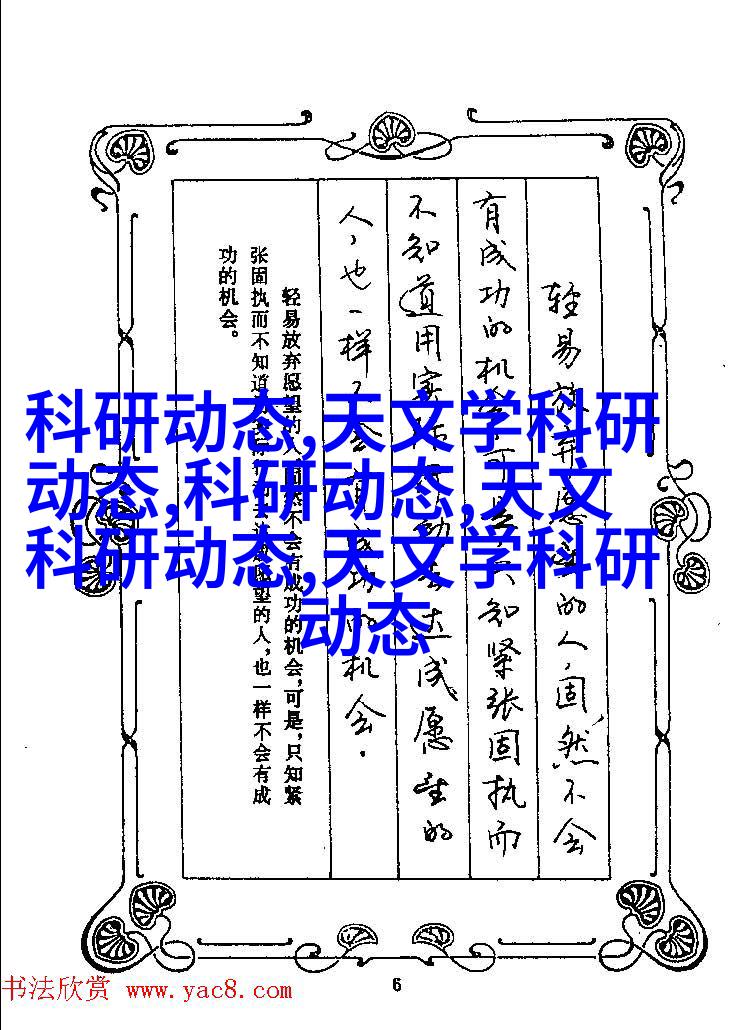 科研动态,天文学科研
动态,科研动态,天文
科研动态,天文学科研
动态
轻易放弃愿望的人,固然不会
有成功的机会,可是,只知紧张固执而
不知道用实际行动去达成愿望的
人,也一样不会有成功的机会.
轻易放弃愿望的人,固然不会有成功的机会,可是,只知紧
张固执而不知道用实际行动去达成愿望的人,也一样不会有成
功的机会。
6
书法欣赏 www.yac8.com